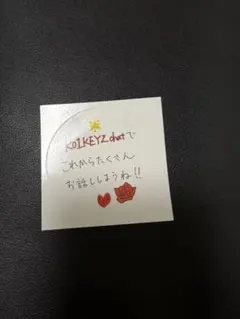 KOIKEYZ chatで
これからたくさん
お話ししようね!!